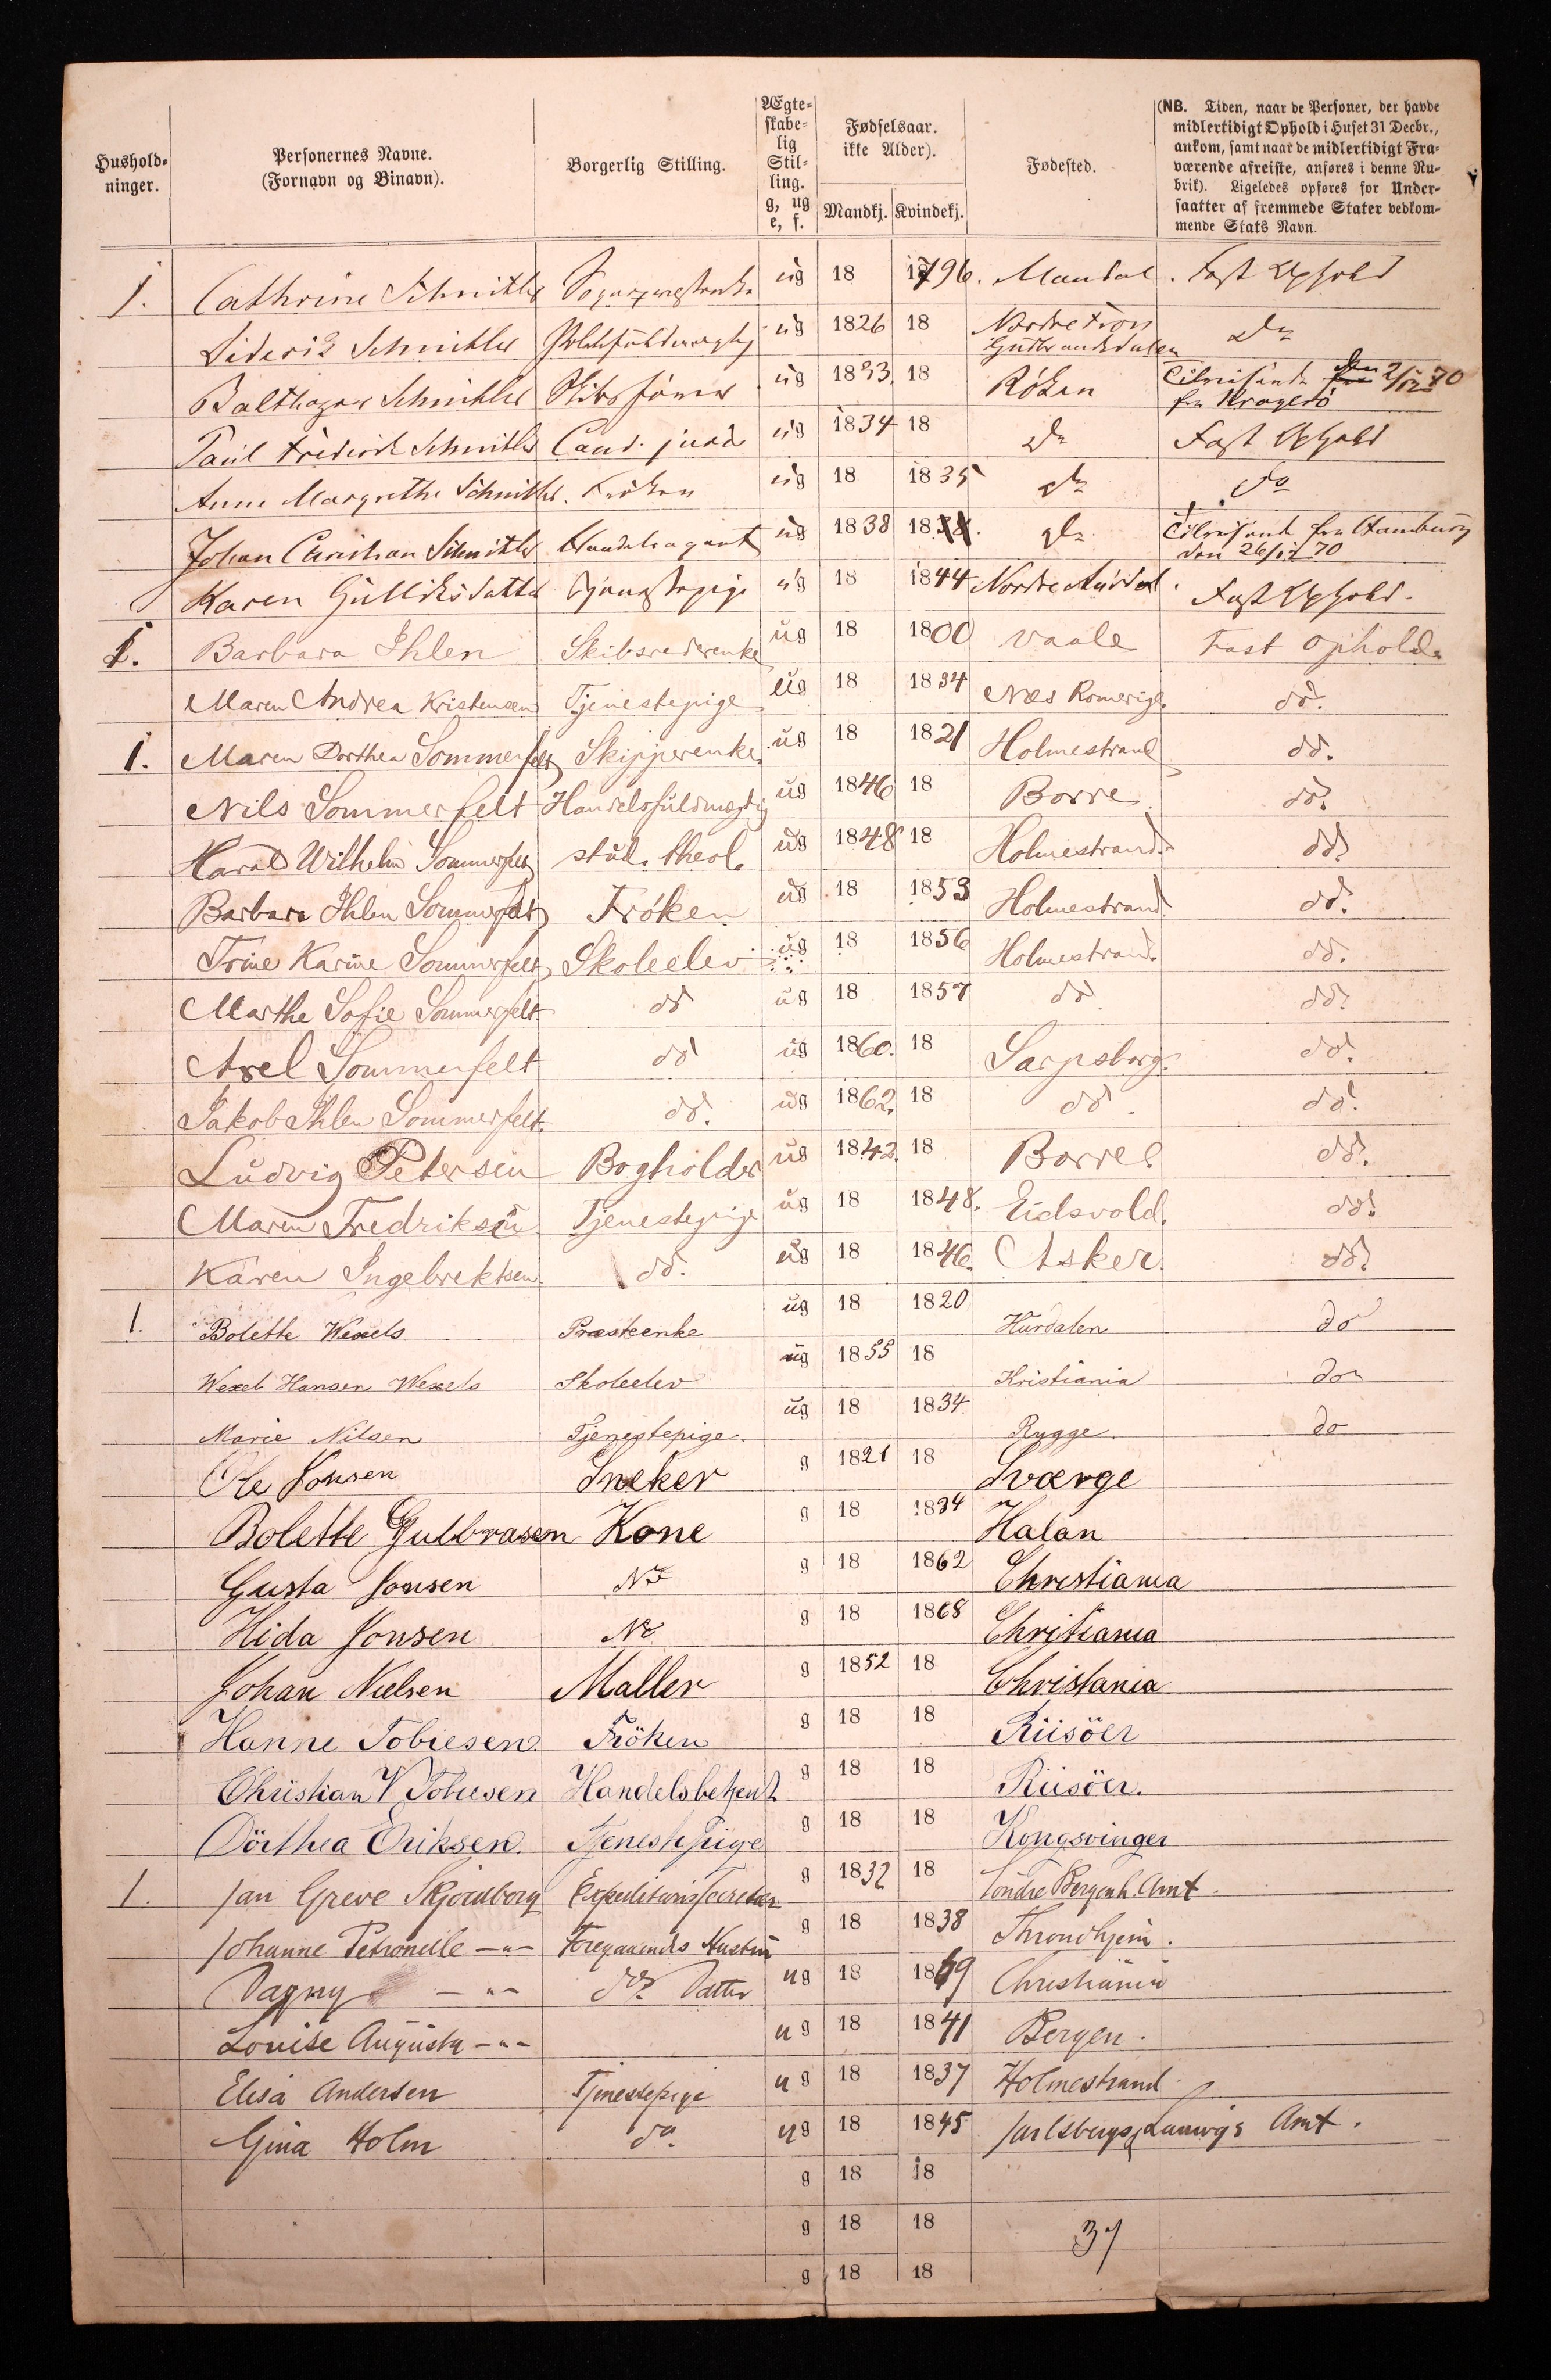 Hushold-
ninger.
Personernes Navne.
(Fornavn og Binavn).
Borgerlig Stilling.
Ægte-
skabe-
lig
Stil-
ling.
g, ug
e, f.
Fødselsaar.
ikke Alder).
Mandkj. Kvindekj.
Fødested.
(NB. Tiden, naar de Personer, der havde
midlertidigt Ophold i Huset 31 Decbr.,
ankom, samt naar de midlertidigt Fra-
værende afreiste, anføres i denne Ru-
brik). Ligeledes opføres for Under-
saatter af fremmede Stater vedkom-
mende Stats Navn.
1. Cathrine Schnitler ug 18 1796. Mandal. Fast Ophold
Diderik Schnitler ug 1826 18 Nordre Fron Gudbrandsdalen do
Balthazar Schnitler Skibsfører ug 1833. 18 Röken Tilreisende den 2/12 70 fra Kragerö
Paul Frederik Schnitler Cand. jurid ug 1834 18 do Fast Ophold
Anne Margrethe Schnitler. Frøken ug 18 1835 do do
Johan Christian Schnitler Handelsagent ug 1838 18 do Tilreisende fra Hamburg den 26/12 70
Karen Gulliksdatter Tjenestepige ug 18 1844 Nordre Aurdal. Fast Ophold.
1. Barbara Ihlen Skibsrederenke ug 18 1800 Vaale Fast Ophold.
Maren Andrea Kristensen Tjenestepige ug 18 1834 Næs Romerige. do.
1. Maren Dorthea Sommerfelt Skipperenke. ug 18 1821 Holmestrand do.
Nils Sommerfelt Handelsfuldmægtig ug 1846 18 Borre. do.
Harald Wilhelm Sommerfelt stud. theol. ug 1848 18 Holmestrand. do.
Barbara Ihlen Sommerfelt Frøken ug 18 1853 Holmestrand do.
Trine Karine Sommerfelt Skoleelev ug 18 1856 Holmestrand. do.
Marthe Sofie Sommerfelt do ug 18 1857 do do.
Axel Sommerfelt do ug 1860. 18 Sarpsborg. do.
Jakob Ihlen Sommerfelt. do. ug 1862. 18 do. do.
Ludvig Petersen Bogholder ug 1842. 18 Borre. do.
Maren Fredriksen Tjenestepige ug 18 1848. Eidsvold. do.
Karen Ingebrektsen. do. ug 18 1846. Asker. do.
1. Bolette Wexels Præsteenke ug 18 1820 Hurdalen do
Wexel Hansen Wexels Skoleelev ug 1855 18 Kristiania do
Marie Nilsen Tjenestepige. ug 18 1834. Rygge. do
Ole Jonsen Sneker g 1821 18 Sværge
Bolette Gulbrasen Kone g 18 1834 Halan
Gusta Jonsen g 18 1862 Christiania
Hida Jonsen g 18 1868 Chritiania
Johan Nielsen Maller g 1852 18 Christania
Hanne Tobiesen. Fröken g 18 18 Riisöer
Christian V Tobiesen Handelsbetjent g 18 18 Riisöer.
Dörthea Eriksen. Tjenestepige g 18 18 Kongsvinger
1. Jan Greve Skjoldborg Expeditionssecretær g 1832 18 Söndre Bergenh. Amt.
Johanne Petronelle -"- Foregaaendes Hustru g 18 1838 Throndhjem.
Dagny -"- do. Datter ug 18 1869 Christiania
Louise Augusta -"- ug 18 1841 Bergen.
Elisa Andersen Tjenestepige ug 18 1837 Holmestrand
Gina Holm do. ug 18 1845 Jarlsbergs & Laurvigs Amt.
g 18 18
g 18 18
37
g 18 18